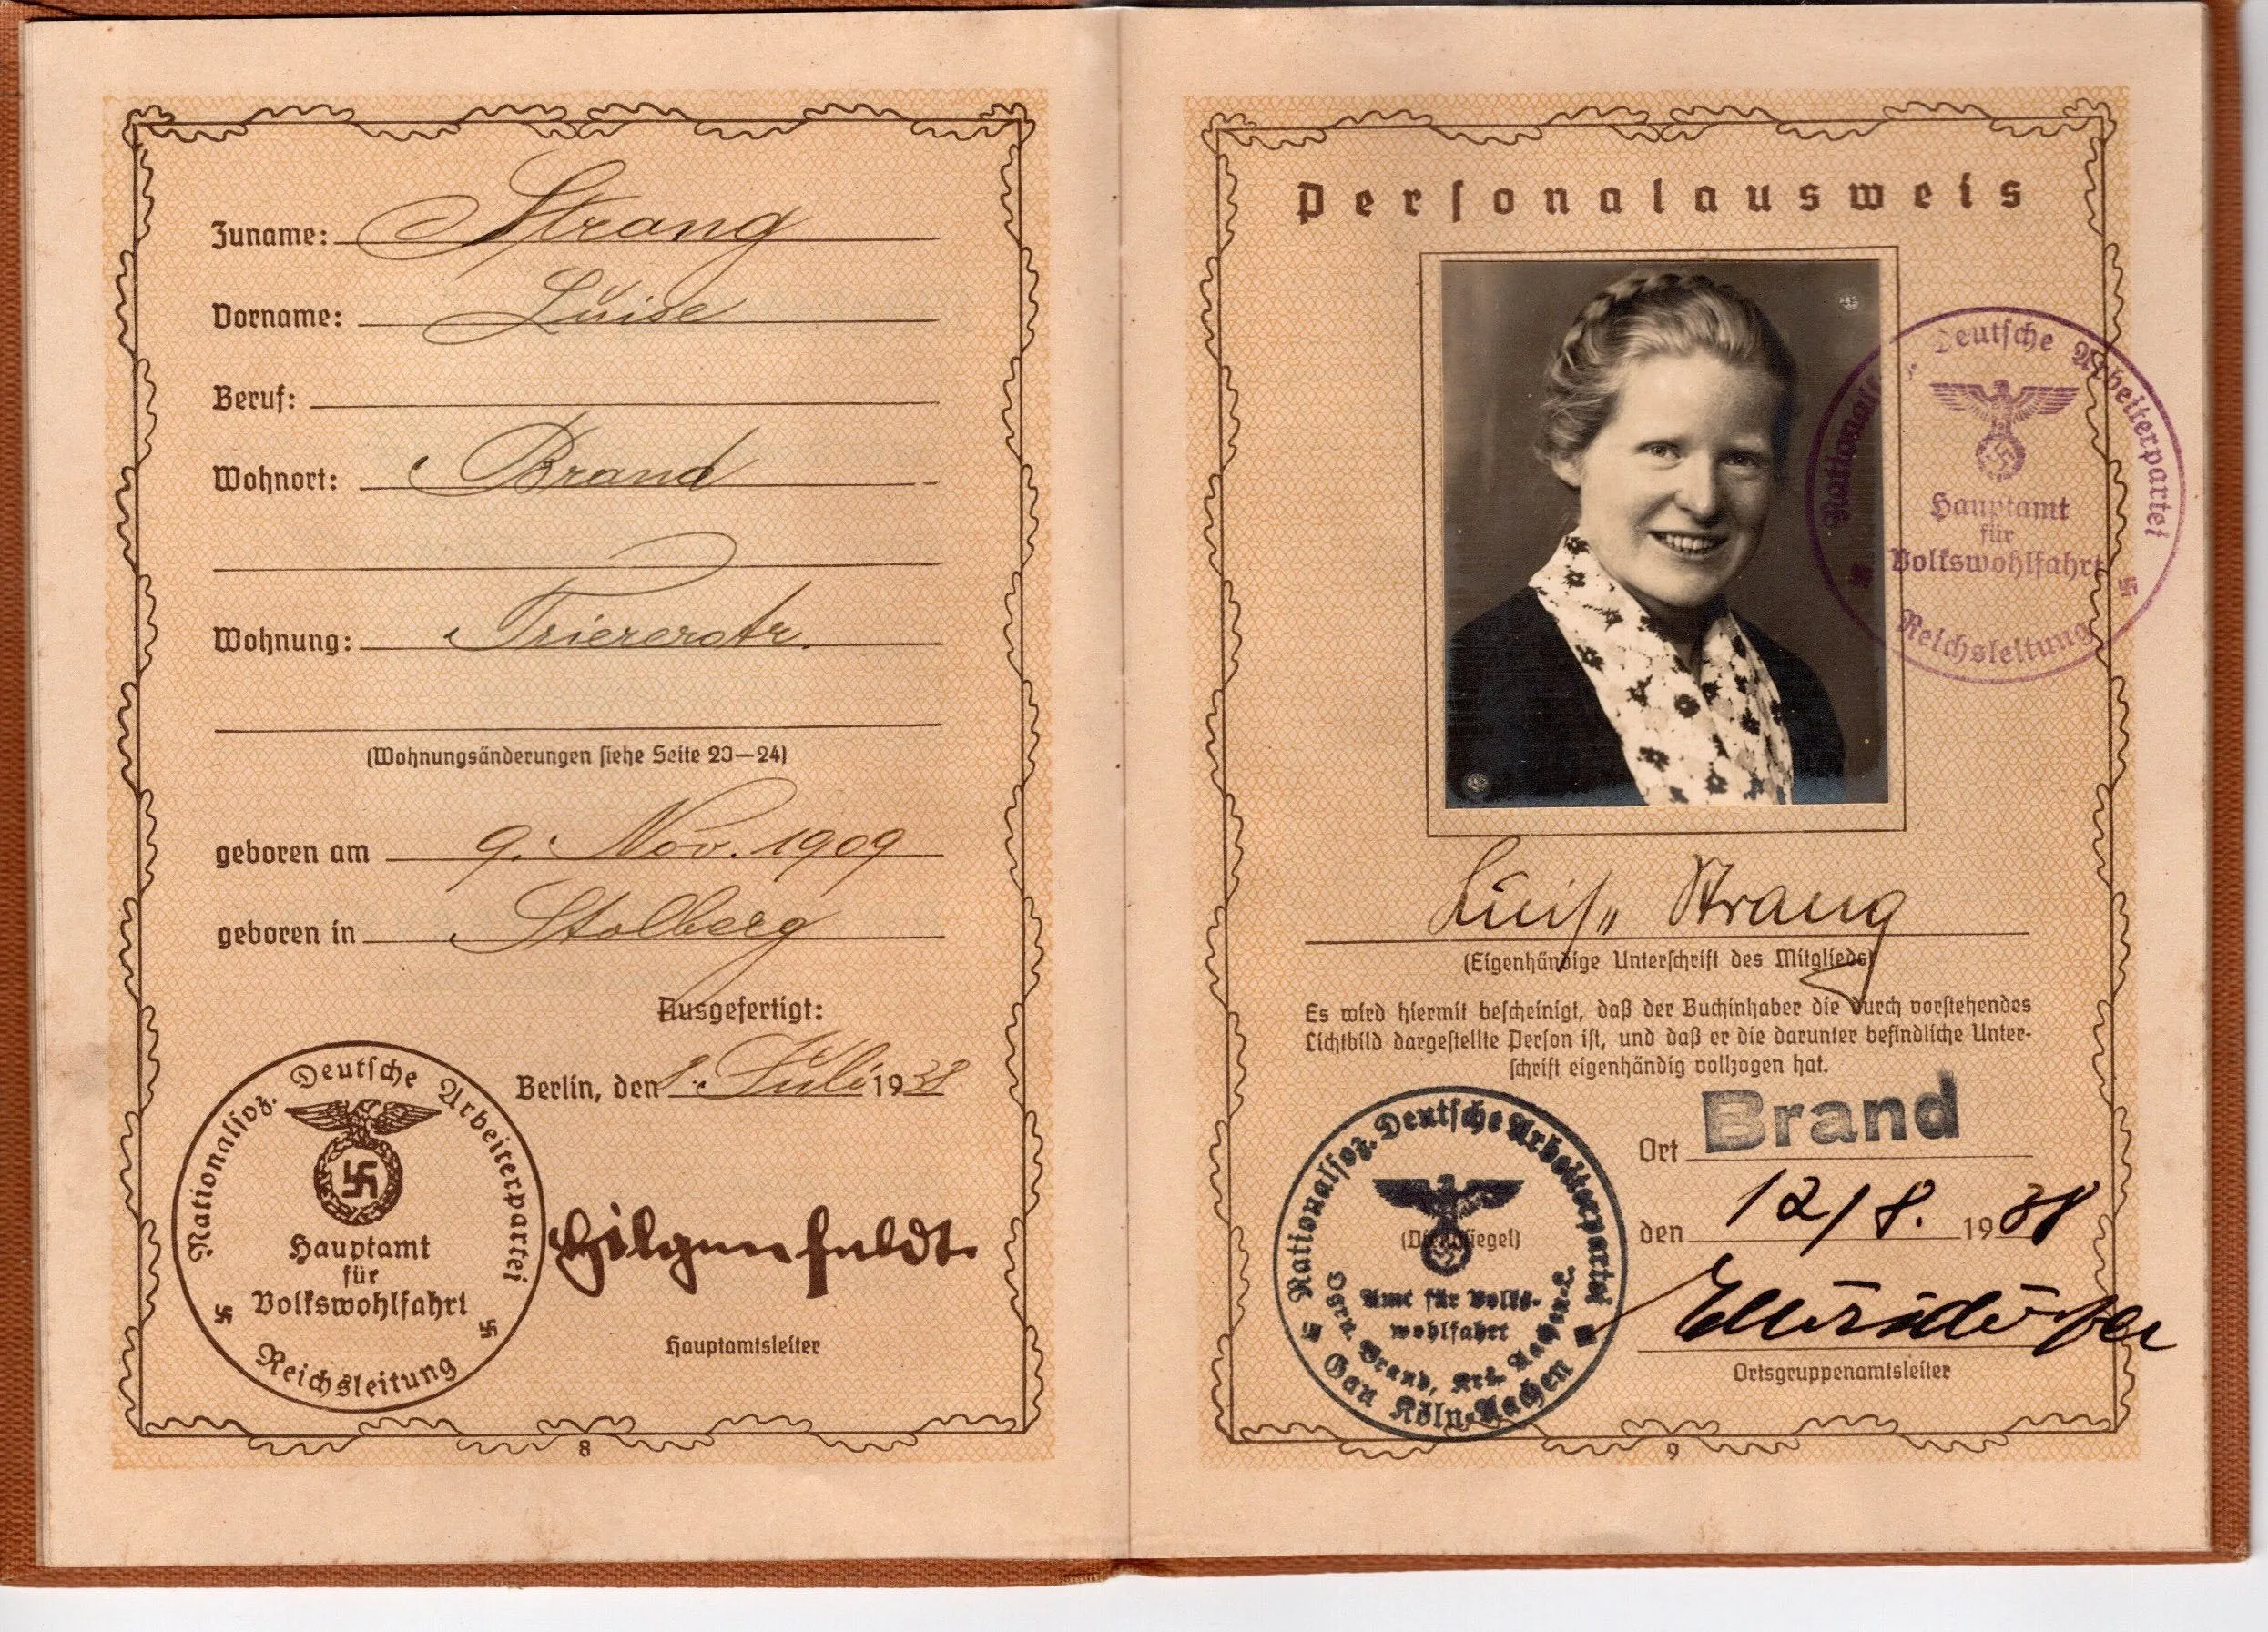 Zuname: Strang
Vorname: Luise
Beruf:
Wohnort: Brand
Wohnung: Triererstr.
(Wohnungsänderungen siehe Seite 23—24)
geboren am 9. Nov. 1909
geboren in Stolberg
Ausgefertigt:
Berlin, den 1. Juli 1938
Nationalsoz. Deutsche Arbeiterpartei
Hauptamt
für
Volkswohlfahrt
Reichsleitung
Hilgenfeldt.
Hauptamtsleiter
8
Personalausweis
Nationalsoz. Deutsche Arbeiterpartei
Hauptamt
für
Volkswohlfahrt
Reichsleitung
Luise Strang
(Eigenhändige Unterschrift des Mitglieds)
Es wird hiermit bescheinigt, daß der Buchinhaber die durch vorstehendes
Lichtbild dargestellte Person ist, und daß er die darunter befindliche Unter-
schrift eigenhändig vollzogen hat.
Ort Brand
den 12/8. 1938
Ortsgruppenamtsleiter
Nationalsoz. Deutsche Arbeiterpartei
(Dienstsiegel)
Amt für Volks-
wohlfahrt
Ogru. Brand, Krs. Aachen-L.
Gau Köln-Aachen
9